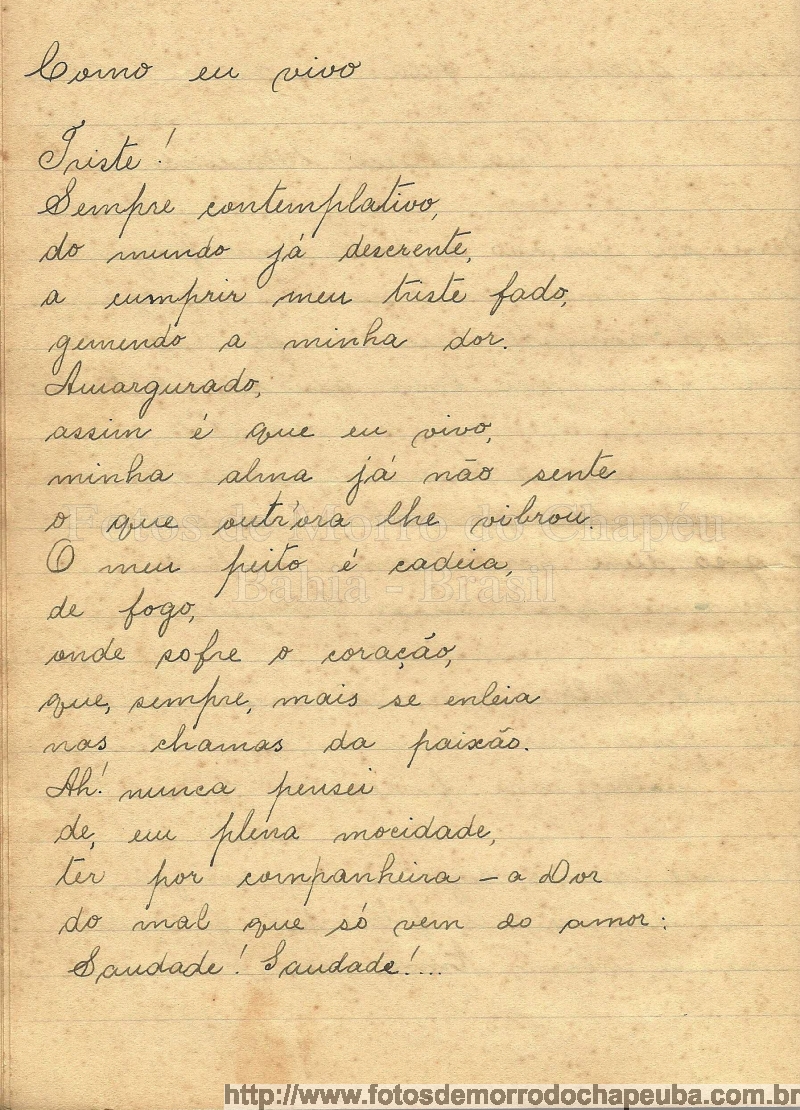 Como eu vivo
Triste!
Sempre contemplativo,
do mundo já descrente,
a cumprir meu triste fado,
gemendo a minha dor.
Amargurado,
assim é que eu vivo,
minha alma já não sente
o que outr'ora lhe vibrou.
Fotos de Morro do Chapéu
O meu peito é cadeia,
Bahia - Brasil
de fogo,
onde sofre o coração,
que, sempre, mais se enleia
nas chamas da paixão.
Ah! nunca pensei
de, em plena mocidade,
ter por companheira – a Dor
do mal que só vem do amor:
Saudade! Saudade!...
http://www.fotosdemorrodochapeuba.com.br